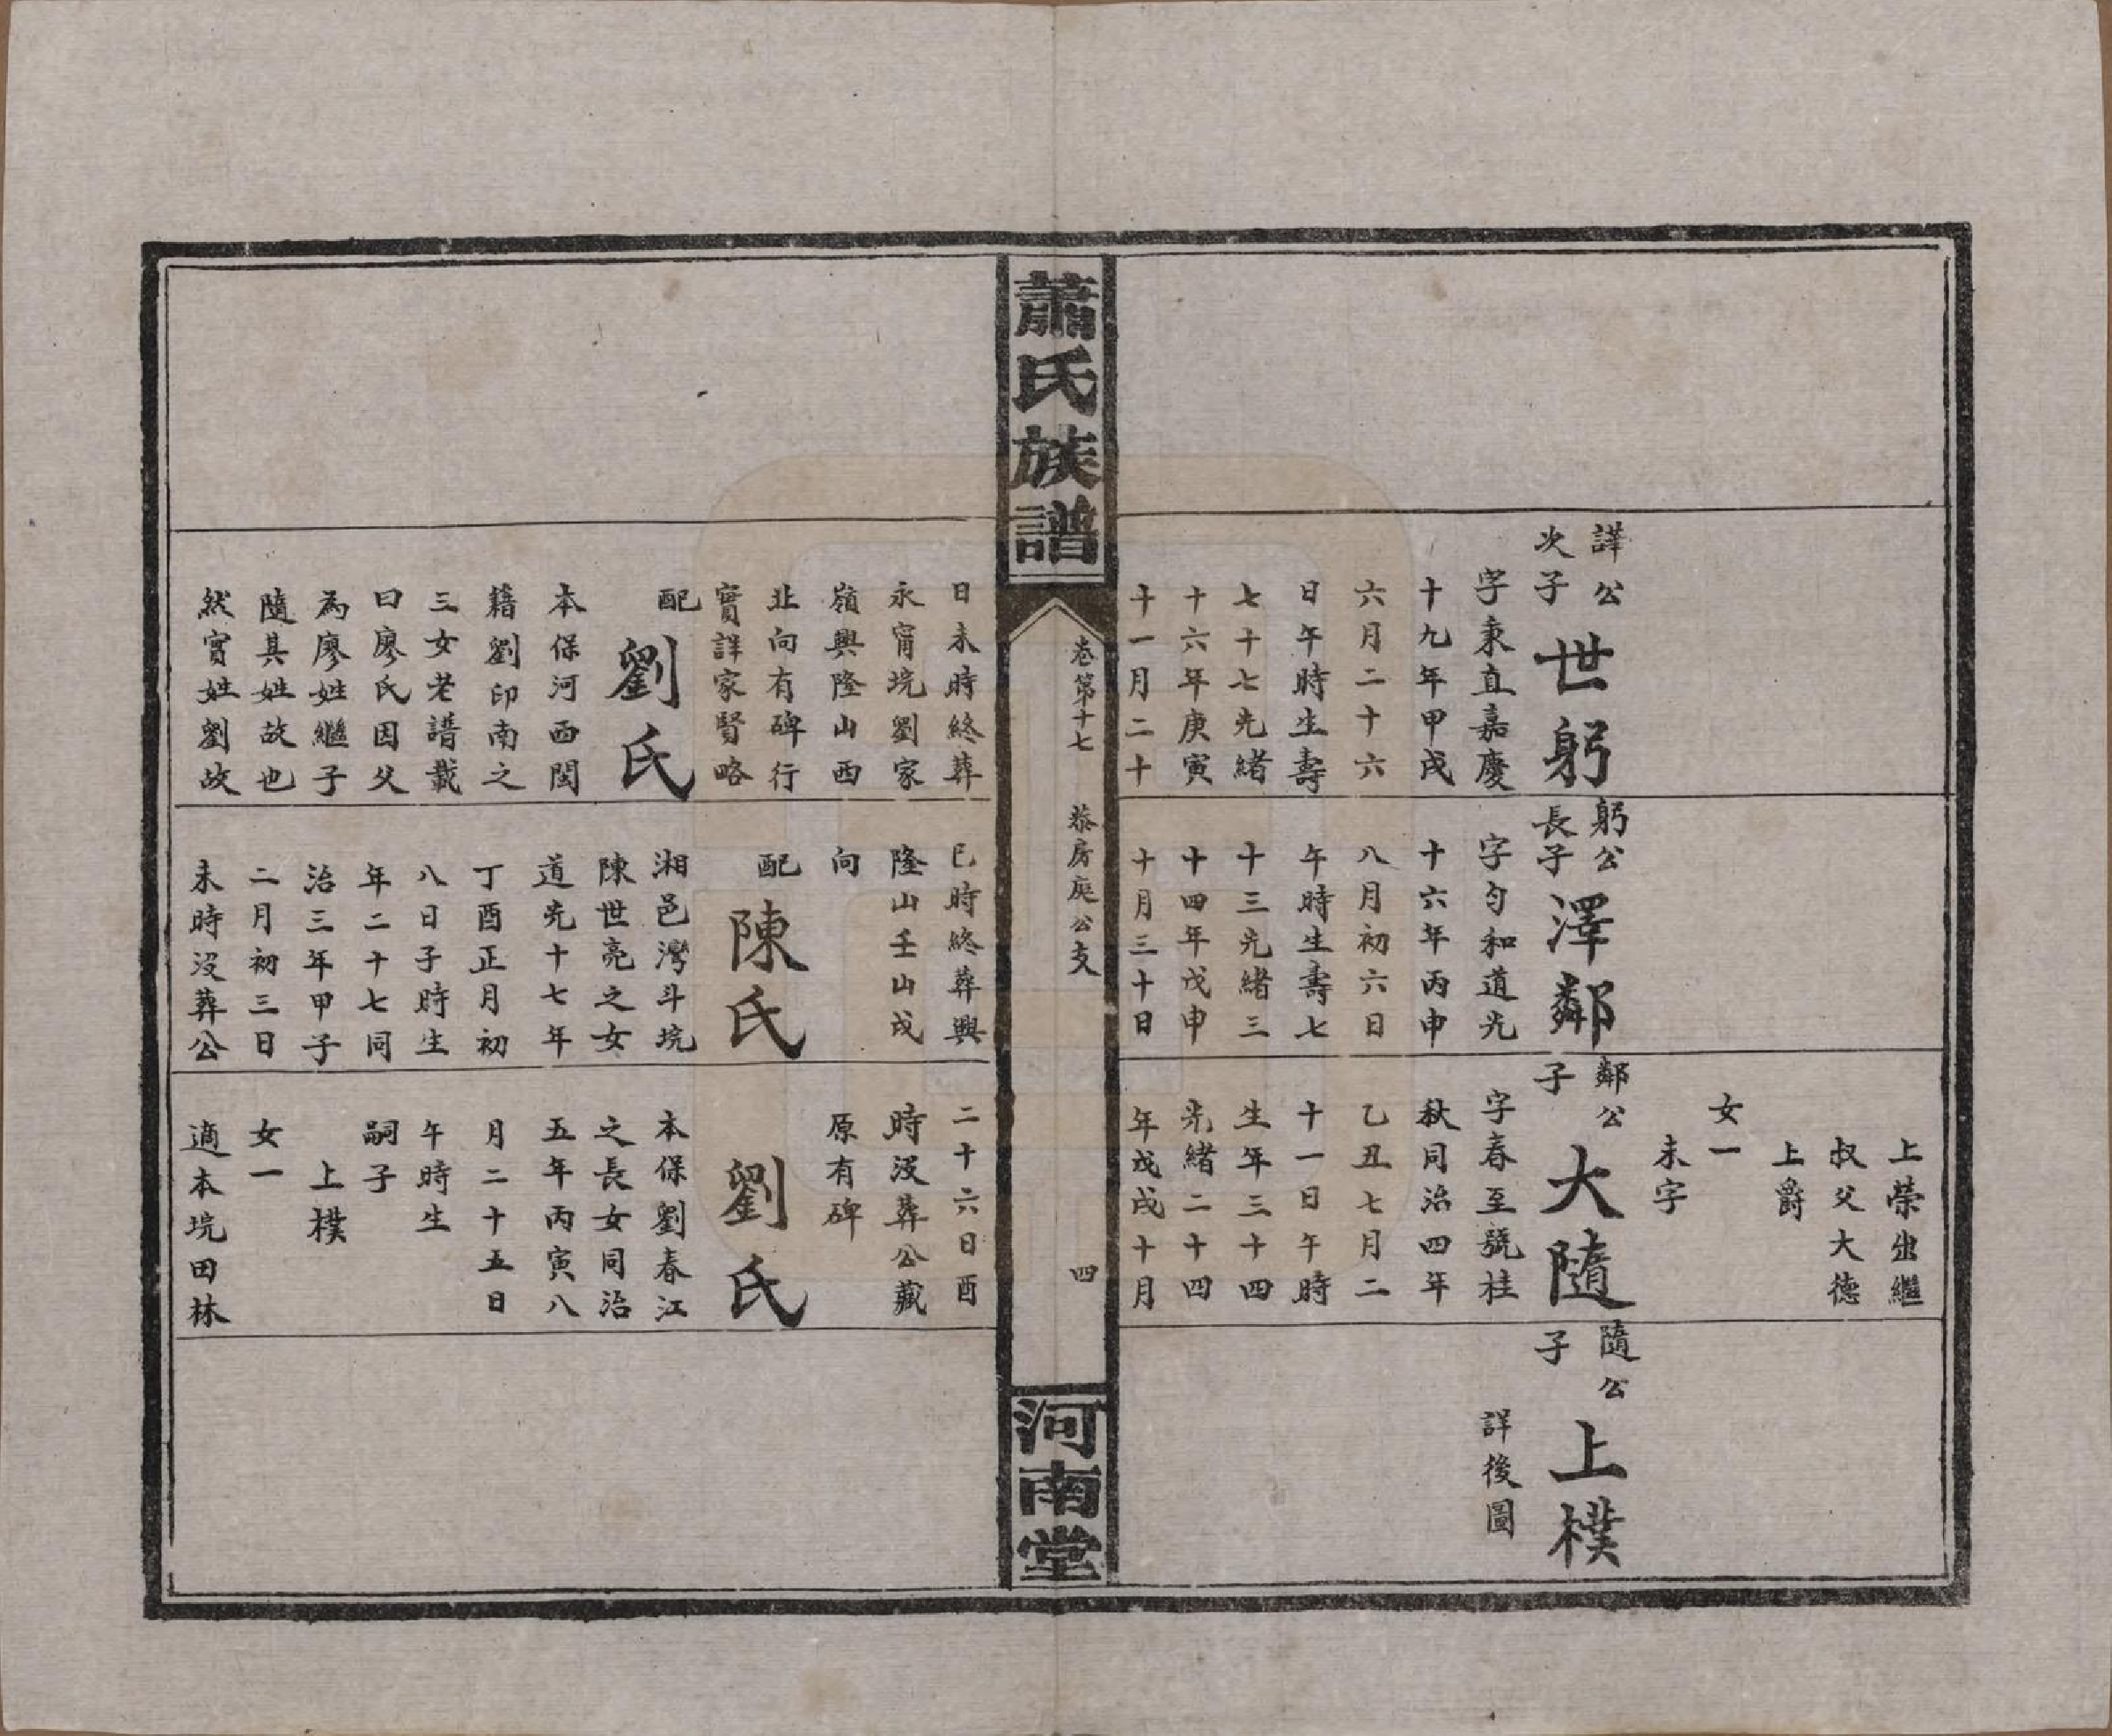 上榮出繼
叔父大德
上爵
女一
未字
譁公
次子
世躬
字秉直嘉慶
十九年甲戌
六月二十六
日午時生壽
七十七光緒
十六年庚寅
十一月二十
躬公
長子
澤鄰
字勻和道光
十六年丙申
八月初六日
午時生壽七
十三光緒三
十四年戊申
十月三十日
鄰公
子
大隨
字春至號桂
秋同治四年
乙丑七月二
十一日午時
生年三十四
光緒二十四
年戊戌十月
隨公
子
上樸
詳後圖
蕭氏族譜
卷第十七
恭房庭公支
四
河南堂
日未時終葬
永甯坑劉家
嶺興隆山西
北向有碑行
實詳家賢略
配
劉氏
本保河西閣
籍劉印南之
三女老譜載
曰廖氏因父
為廖姓繼子
隨其姓故也
然實姓劉故
巳時終葬興
隆山壬山戌
向
配
陳氏
湘邑灣斗坑
陳世亮之女
道光十七年
丁酉正月初
八日子時生
年二十七同
治三年甲子
二月初三日
未時沒葬公
二十六日酉
時沒葬公藏
原有碑
劉氏
本保劉春江
之長女同治
五年丙寅八
月二十五日
午時生
嗣子
上樸
女一
適本坑田林